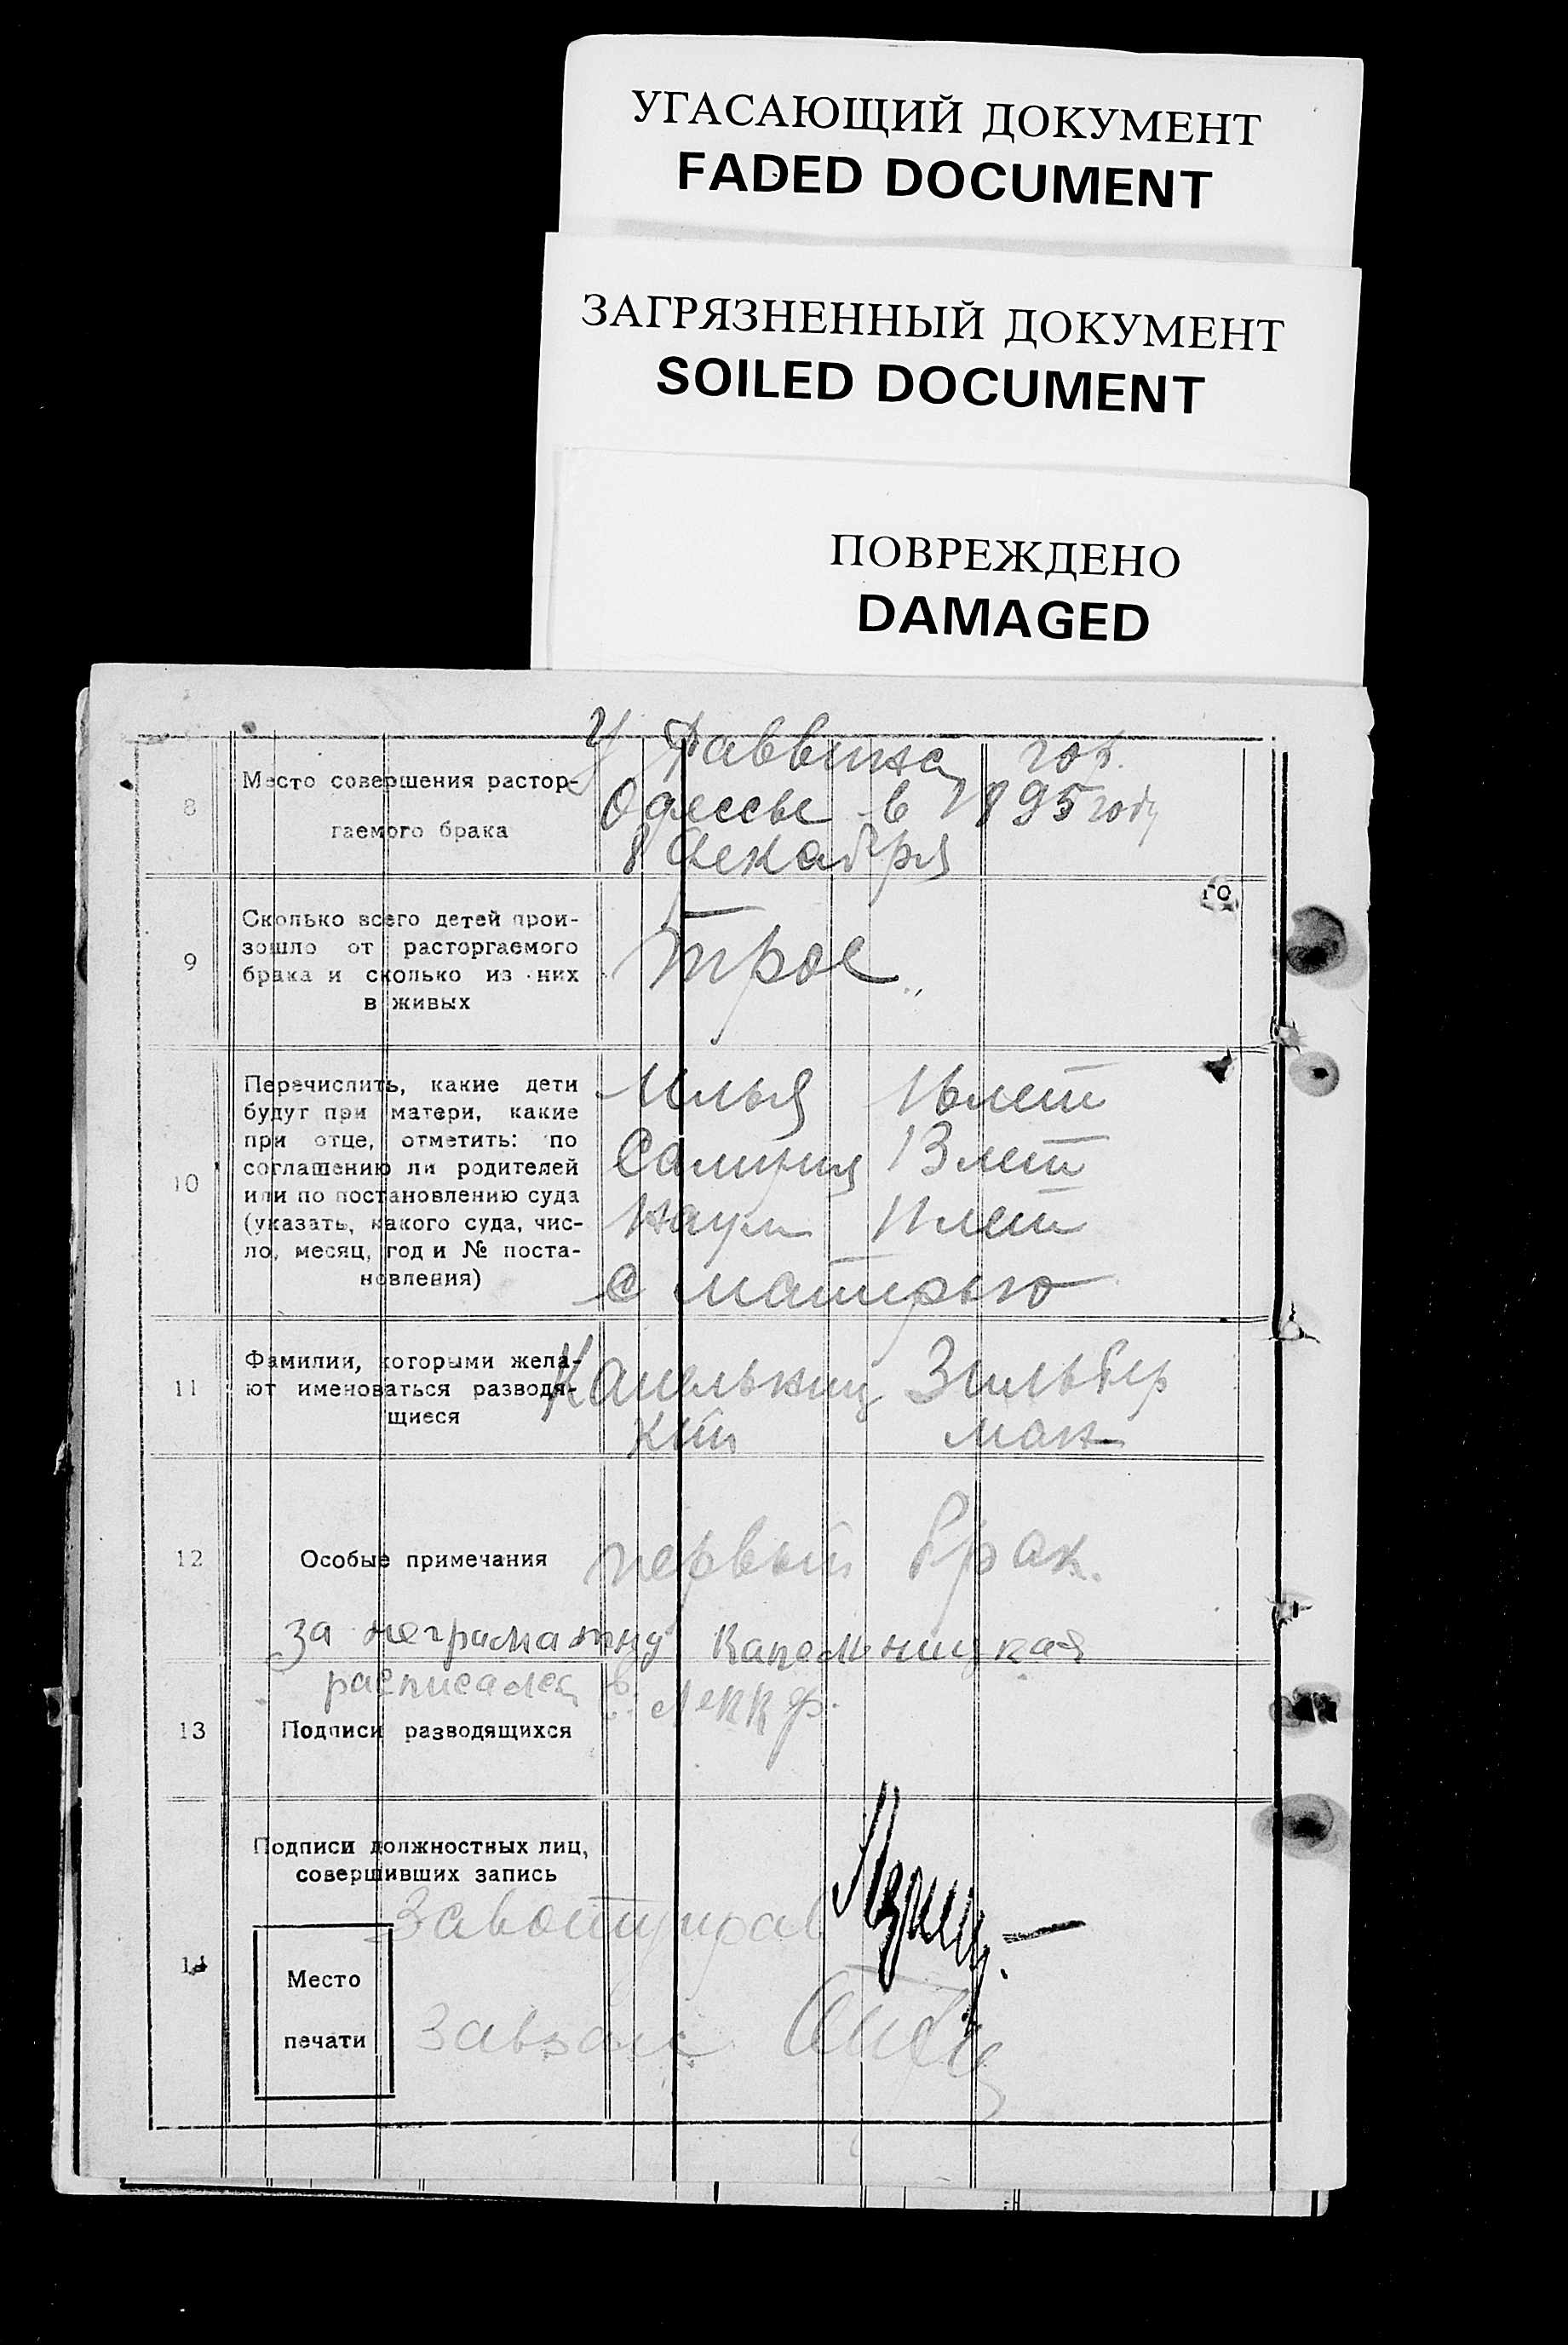 УГАСАЮЩИЙ ДОКУМЕНТ
FADED DOCUMENT
ЗАГРЯЗНЕННЫЙ ДОКУМЕНТ
SOILED DOCUMENT
ПОВРЕЖДЕНО
DAMAGED
8
Место совершения растор-
гаемого брака
У Раввина гор.
Одессы в 1895 году
8 декабря
го
9
Сколько всего детей прои-
зошло от расторгаемого
брака и сколько из них
в живых
трое
10
Перечислить, какие дети
будут при матери, какие
при отце, отметить: по
соглашению ли родителей
или по постановлению суда
(указать, какого суда, чис-
ло, месяц, год и № поста-
новления)
Илья 16 лет
13 лет
Наум 11 лет
с матерью
11
Фамилии, которыми жела-
ют именоваться разводя-
щиеся
Капельниц Зильбер
кий ман
12
Особые примечания
первый брак.
за неграматну Капельницкая
расписалса
13
Подписи разводящихся
14
Подписи должностных лиц,
совершивших запись
Место
печати
Завзагс